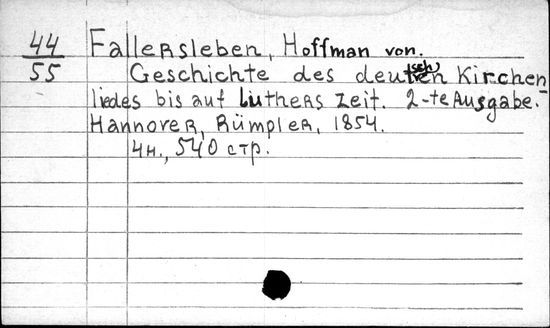 44/55 Fallersleben, Hoffman von.
Geschichte des deutschen Kirchen-
liedes bis auf Luthers Zeit. 2-te Ausgabe.
Hannover, Rümpler, 1854.
4н., 540 стр.